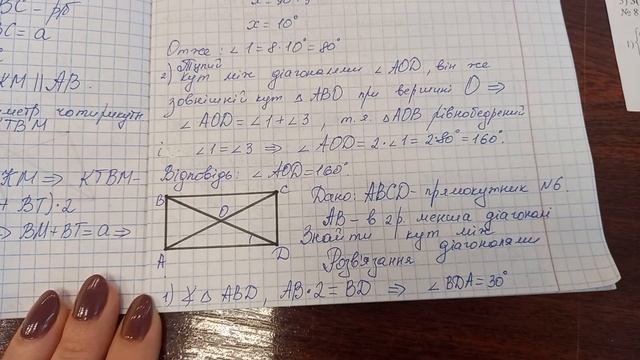 ВС - рБ
ВС = a
КМ || АВ.
метр чотирикутн
ТВМ
КМ ⇒ КТВМ-
+ ВТ)·2
⇒ ВМ+ВТ=a ⇒
x = 10°
Отже: ∠1=8·10°=80°
2) Тупий
кут між діагоналями ∠AOD, він же
зовнішній кут △ АВО при вершині О ⇒
∠AOD=∠1+∠3, т.я. △АОВ рівнобедрений
і ∠1=∠3 ⇒ ∠AOD=2·∠1=2·80°=160°.
Відповідь: ∠AOD=160°
B C O A D
Дано: ABCD - прямокутник №6.
АВ - в 2р. менша діагоналі
Знайти кут між
діагоналями
Розв'язання
1) △ ABD, AB·2=BD ⇒ ∠BDA=30°
№8
1)